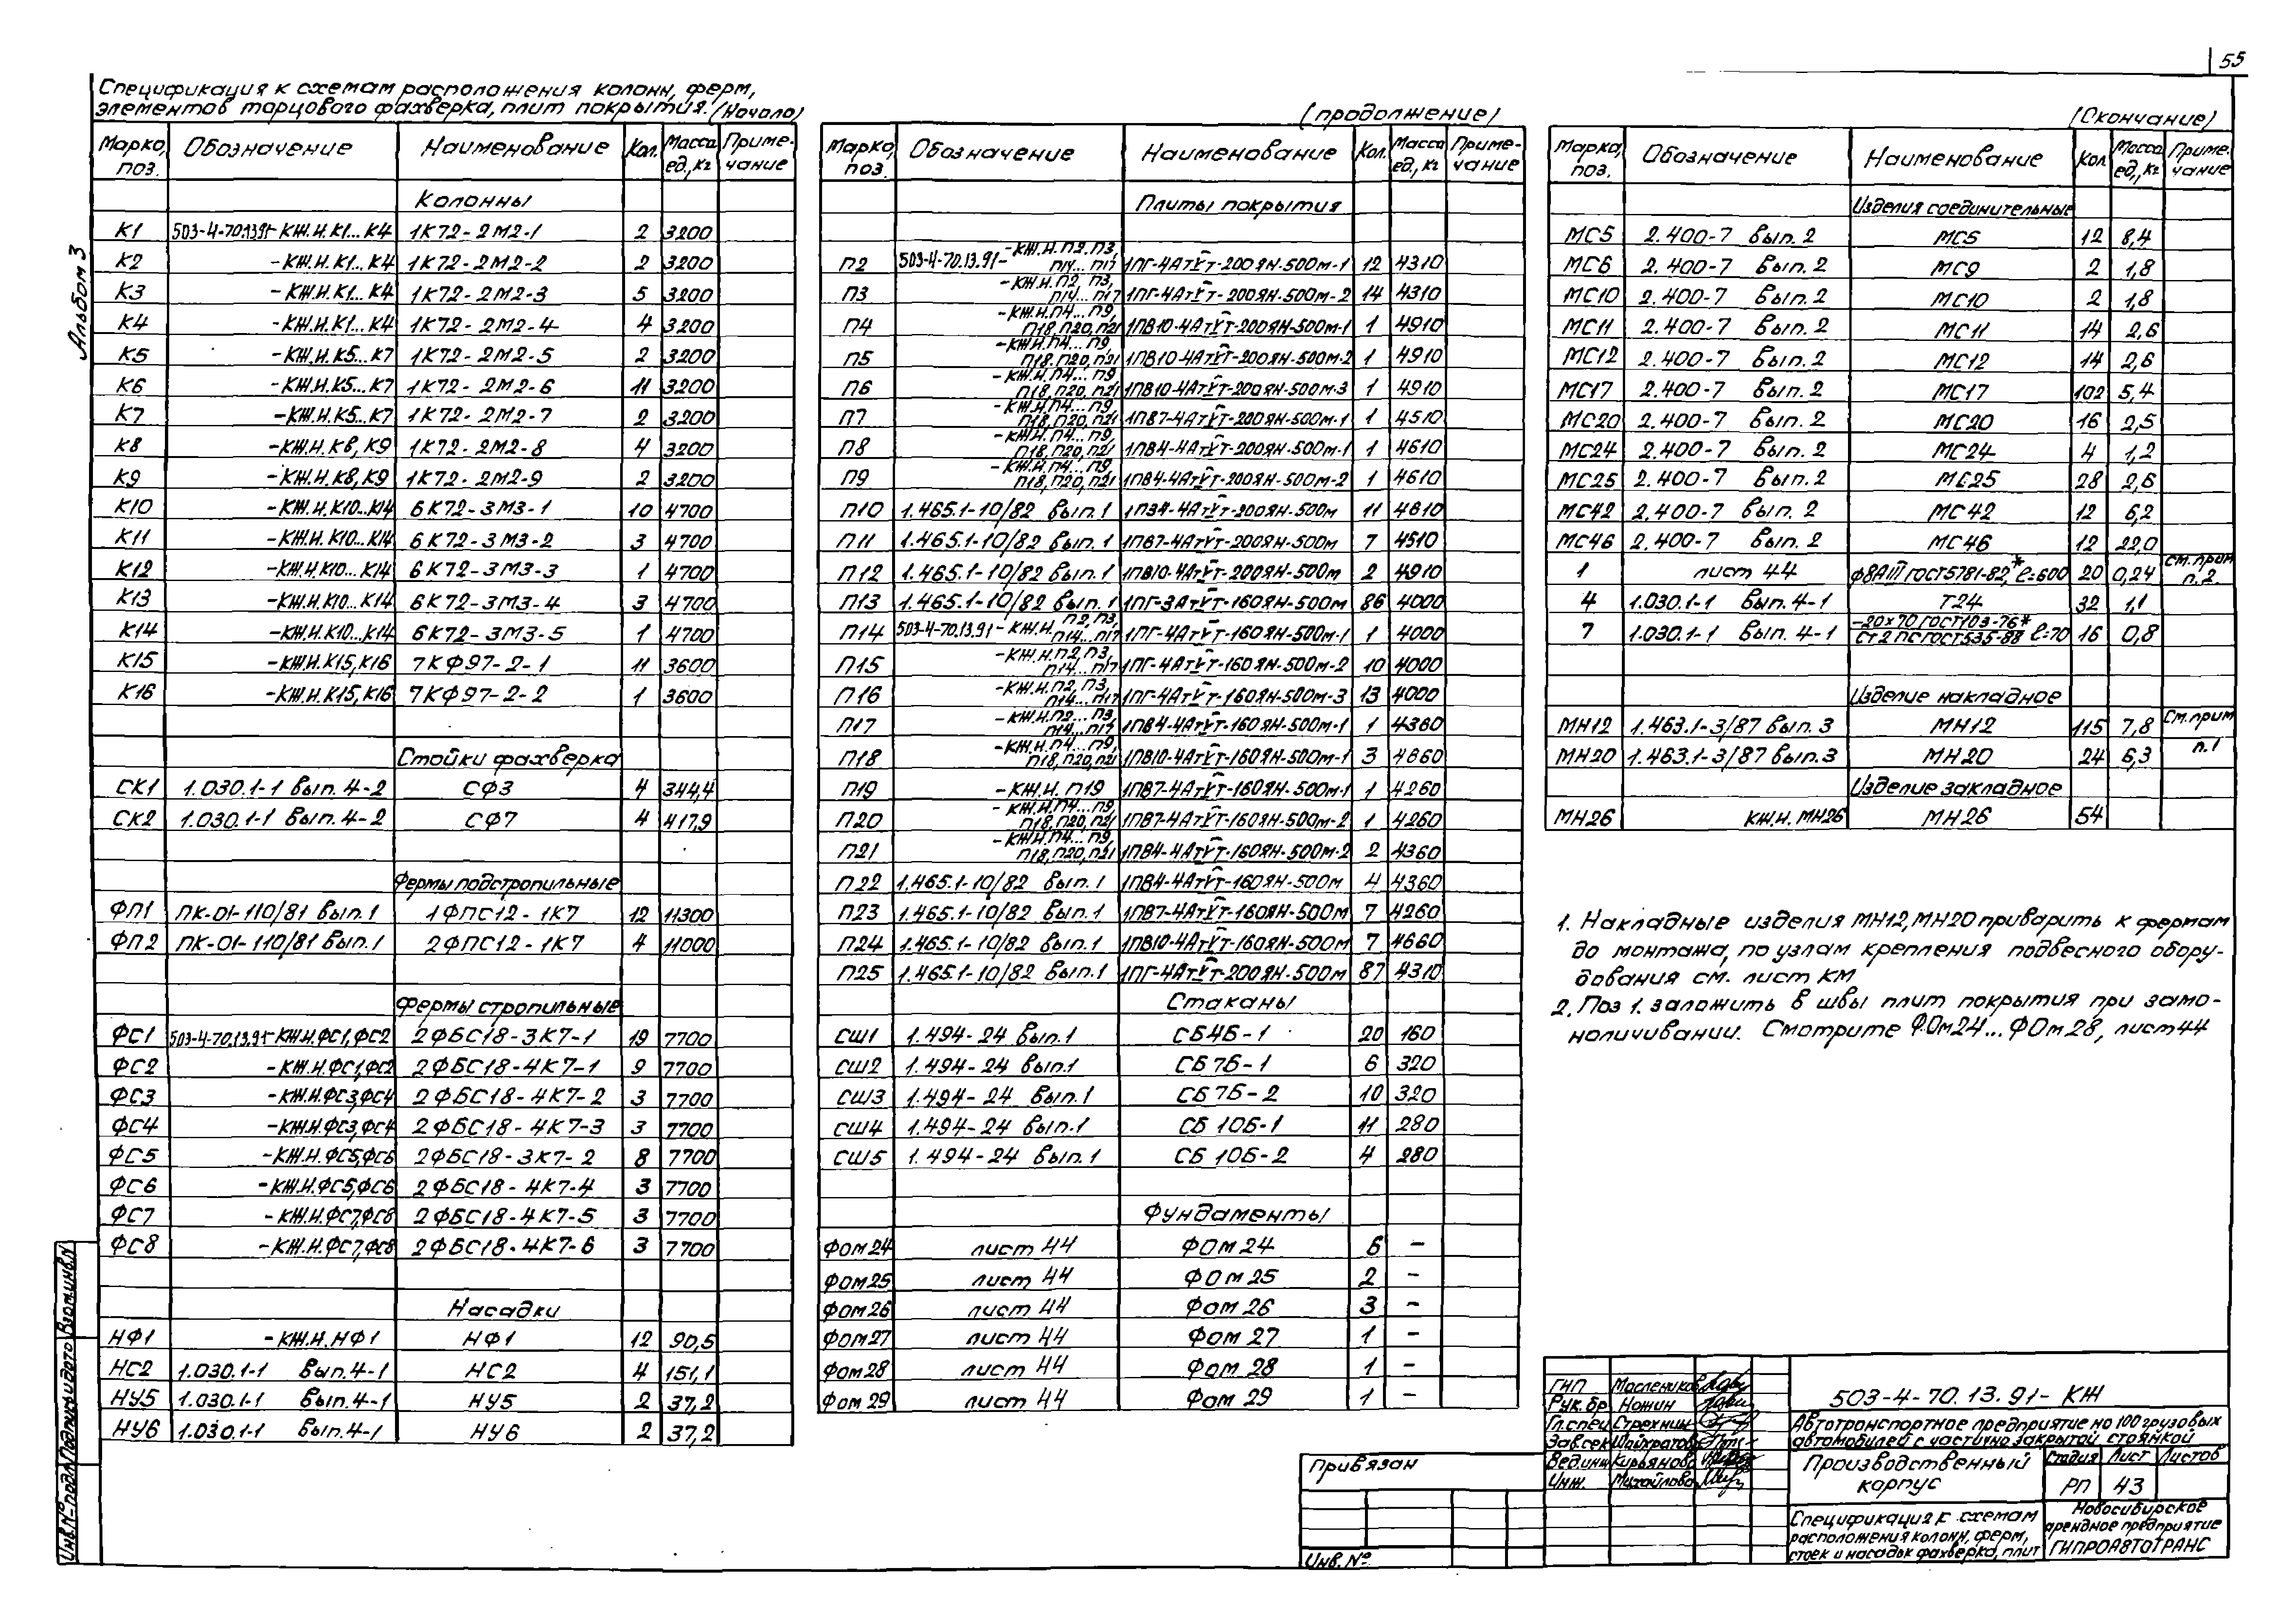 55
Альбом 3
Спецификация к схемам расположения колонн, ферм,
элементов торцового фахверка, плит покрытия. (Начало)
Марка, поз. Обозначение Наименование Кол. Масса ед., кг Примечание
Колонны
К1 503-4-70.13.91-КЖ.И.К1...К4 1К72-2М2-1 2 3200
К2 -КЖ.И.К1...К4 1К72-2М2-2 2 3200
К3 -КЖ.И.К1...К4 1К72-2М2-3 5 3200
К4 -КЖ.И.К1...К4 1К72-2М2-4 4 3200
К5 -КЖ.И.К5...К7 1К72-2М2-5 2 3200
К6 -КЖ.И.К5...К7 1К72-2М2-6 11 3200
К7 -КЖ.И.К5...К7 1К72-2М2-7 2 3200
К8 -КЖ.И.К8, К9 1К72-2М2-8 4 3200
К9 -КЖ.И.К8, К9 1К72-2М2-9 2 3200
К10 -КЖ.И.К10...К14 6К72-3М3-1 10 4700
К11 -КЖ.И.К10...К14 6К72-3М3-2 3 4700
К12 -КЖ.И.К10...К14 6К72-3М3-3 1 4700
К13 -КЖ.И.К10...К14 6К72-3М3-4 3 4700
К14 -КЖ.И.К10...К14 6К72-3М3-5 1 4700
К15 -КЖ.И.К15, К16 7КФ97-2-1 11 3600
К16 -КЖ.И.К15, К16 7КФ97-2-2 1 3600
Стойки фахверка
СК1 1.030.1-1 вып. 4-2 СФ3 4 344,4
СК2 1.030.1-1 вып. 4-2 СФ7 4 417,9
Фермы подстропильные
ФП1 ПК-01-110/81 вып.1 1ФПС12-1К7 12 11300
ФП2 ПК-01-110/81 вып.1 2ФПС12-1К7 4 11000
Фермы стропильные
ФС1 503-4-70.13.91-КЖ.И.ФС1, ФС2 2ФБС18-3К7-1 19 7700
ФС2 -КЖ.И.ФС1, ФС2 2ФБС18-4К7-1 9 7700
ФС3 -КЖ.И.ФС3, ФС4 2ФБС18-4К7-2 3 7700
ФС4 -КЖ.И.ФС3, ФС4 2ФБС18-4К7-3 3 7700
ФС5 -КЖ.И.ФС5, ФС6 2ФБС18-3К7-2 8 7700
ФС6 -КЖ.И.ФС5, ФС6 2ФБС18-4К7-4 3 7700
ФС7 -КЖ.И.ФС7, ФС8 2ФБС18-4К7-5 3 7700
ФС8 -КЖ.И.ФС7, ФС8 2ФБС18-4К7-6 3 7700
Насадки
НФ1 -КЖ.И.НФ1 НФ1 12 90,5
НС2 1.030.1-1 вып.4-1 НС2 4 151,1
НУ5 1.030.1-1 вып.4-1 НУ5 2 37,2
НУ6 1.030.1-1 вып.4-1 НУ6 2 37,2
(продолжение)
Марка, поз. Обозначение Наименование Кол. Масса ед., кг Примечание
Плиты покрытия
П2 503-4-70.13.91-КЖ.И.П2, П3, П14...П17 1ПГ-4АтVТ-200ЯН-500м-1 12 4310
П3 -КЖ.И.П2, П3, П14...П17 1ПГ-4АтVТ-200ЯН-500м-2 14 4310
П4 -КЖ.И.П4...П9, П18, П20, П21 1ПВ10-4АтVТ-200ЯН-500м-1 1 4910
П5 -КЖ.И.П4...П9 П18, П20, П21 1ПВ10-4АтVТ-200ЯН-500м-2 1 4910
П6 -КЖ.И.П4...П9 П18, П20, П21 1ПВ10-4АтVТ-200ЯН-500м-3 1 4910
П7 -КЖ.И.П4...П9, П18, П20, П21 1ПВ7-4АтVТ-200ЯН-500м-1 1 4510
П8 -КЖ.И.П4...П9, П18, П20, П21 1ПВ4-4АтVТ-200ЯН-500м-1 1 4610
П9 -КЖ.И.П4...П9, П18, П20, П21 1ПВ4-4АтVТ-200ЯН-500м-2 1 4610
П10 1.465.1-10/82 вып.1 4АтVТ-200ЯН-500м 11 4610
П11 1.465.1-10/82 вып.1 1ПВ7-4АтVТ-200ЯН-500м 7 4510
П12 1.465.1-10/82 вып.1 1ПВ10-4АтVТ-200ЯН-500м 2 4910
П13 1.465.1-10/82 вып.1 1ПГ-3АтVТ-160ЯН-500м 86 4000
П14 503-4-70.13.91-КЖ.И.П2, П3, П14...П17 1ПГ-4АтVТ-160ЯН-500м-1 1 4000
П15 -КЖ.И.П2, П3, П14...П17 1ПГ-4АтVТ-160ЯН-500м-2 10 4000
П16 -КЖ.И.П2, П3, П14...П17 1ПГ-4АтVТ-160ЯН-500м-3 13 4000
П17 -КЖ.И.П2...П3, П14...П17 1ПВ4-4АтVТ-160ЯН-500м-1 1 4360
П18 -КЖ.И.П4...П9, П18, П20, П21 1ПВ10-4АтVТ-160ЯН-500м-1 3 4660
П19 -КЖ.И.П19 1ПВ7-4АтVТ-160ЯН-500м-1 1 4260
П20 -КЖ.И.П4...П9 П18, П20, П21 1ПВ7-4АтVТ-160ЯН-500м-2 1 4260
П21 -КЖ.И.П4...П9, П18, П20, П21 1ПВ4-4АтVТ-160ЯН-500м-2 2 4360
П22 1.465.1-10/82 вып.1 1ПВ4-4АтVТ-160ЯН-500м 4 4360
П23 1.465.1-10/82 вып.1 1ПВ7-4АтVТ-160ЯН-500м 7 4260
П24 1.465.1-10/82 вып.1 1ПВ10-4АтVТ-160ЯН-500м 7 4660
П25 1.465.1-10/82 вып.1 1ПГ-4АтVТ-200ЯН-500м 87 4310
Стаканы
СШ1 1.494-24 вып.1 СБ4Б-1 20 160
СШ2 1.494-24 вып.1 СБ7Б-1 6 320
СШ3 1.494-24 вып.1 СБ7Б-2 10 320
СШ4 1.494-24 вып.1 СБ10Б-1 11 280
СШ5 1.494-24 вып.1 СБ10Б-2 4 280
Фундаменты
ФОм24 лист 44 ФОм24 6 -
ФОм25 лист 44 ФОм25 2 -
ФОм26 лист 44 ФОм26 3 -
ФОм27 лист 44 ФОм27 1 -
ФОм28 лист 44 ФОм28 1 -
ФОм29 лист 44 ФОм29 1 -
(Окончание)
Марка, поз. Обозначение Наименование Кол Масса ед., кг Примечание
Изделия соединительные
МС5 2.400-7 вып.2 МС5 12 8,4
МС6 2.400-7 вып.2 МС9 2 1,8
МС10 2.400-7 вып.2 МС10 2 1,8
МС11 2.400-7 вып.2 МС11 14 2,6
МС12 2.400-7 вып.2 МС12 14 2,6
МС17 2.400-7 вып.2 МС17 102 5,4
МС20 2.400-7 вып.2 МС20 16 2,5
МС24 2.400-7 вып.2 МС24 4 1,2
МС25 2.400-7 вып.2 МС25 28 2,6
МС42 2.400-7 вып.2 МС42 12 6,2
МС46 2.400-7 вып.2 МС46 12 22,0
1 лист 44 ф8АIII ГОСТ5781-82*, ℓ=600 20 0,24 см. прим п.2
4 1.030.1-1 вып.4-1 Т24 32 1,1
7 1.030.1-1 вып.4-1 -20х70 ГОСТ103-76* Ст2пс ГОСТ535-88 ℓ=70 16 0,8
Изделие накладное
МН12 1.463.1-3/87 вып.3 МН12 115 7,8 См. прим
МН20 1.463.1-3/87 вып.3 МН20 24 6,3 п.1
Изделие закладное
МН26 КЖ.И.МН26 МН26 54
1. Накладные изделия МН12, МН20 приварить к фермам
до монтажа, по узлам крепления подвесного обору-
дования см. лист КМ
2. Поз 1. заложить в швы плит покрытия при замо-
ноличивании. Смотрите ФОм24...ФОм28, лист 44
Привязан
Инв.№
ГИП Маслеников
Рук.бр Ножин
Гл.спец Стрехнин
Зав.сек Шайхратова
Вед.инж Кирьянова
Инж. Михайлова
503-4-70.13.91-КЖ
Автотранспортное предприятие на 100 грузовых
автомобилей с частично закрытой стоянкой
Производственный
корпус
Стадия Лист Листов
РП 43
Спецификация к схемам
расположения колонн, ферм,
стоек и насадок фахверка, плит
Новосибирское
арендное предприятие
ГИПРОАВТОТРАНС
Инв.№ подл Подпись и дата Взам.инв.N